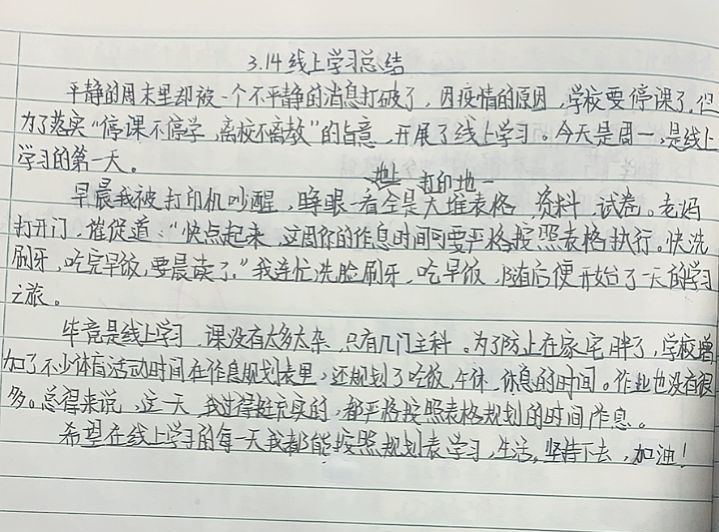 3.14线上学习总结
平静的周末里却被一个不平静的消息打破了，因疫情的原因，学校要停课了，但
为了落实“停课不停学，离校不离教”的旨意，开展了线上学习。今天是周一，是线上
学习的第一天。
地上 打印地
早晨我被打印机吵醒，睁眼一看全是大堆表格，资料，试卷。老妈
打开门，催促道：“快点起来，这周你的作息时间可要严格按照表格执行。快洗
刷牙，吃完早饭，要晨读了。”我连忙洗脸刷牙，吃早饭，随后便开始了一天的学习
之旅。
毕竟是线上学习，课没有太多太杂，只有几门主科。为了防止在家宅胖了，学校增
加了不少体育活动时间在作息规划表里，还规划了吃饭，午休，休息的时间。作业也没有很
多。总得来说，这一天，我过得挺充实的，都严格按照表格规划的时间作息。
希望在线上学习的每一天我都能按照规划表学习，生活，坚持下去，加油！